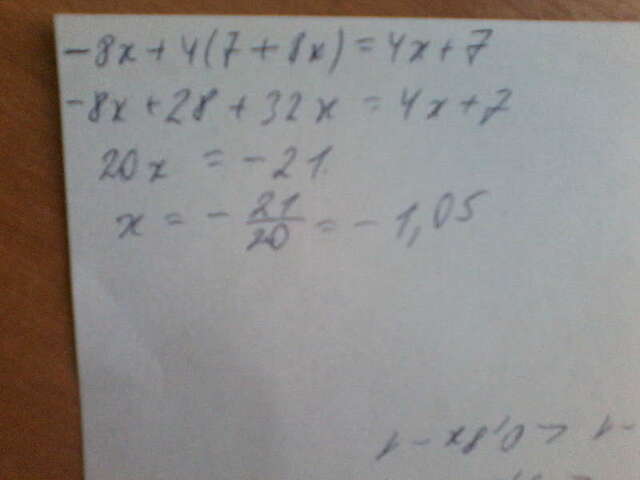 -8x+4(7+8x)=4x+7
-8x+28+32x=4x+7
20x=-21
x=-21/20=-1,05
-1<0,8x-1